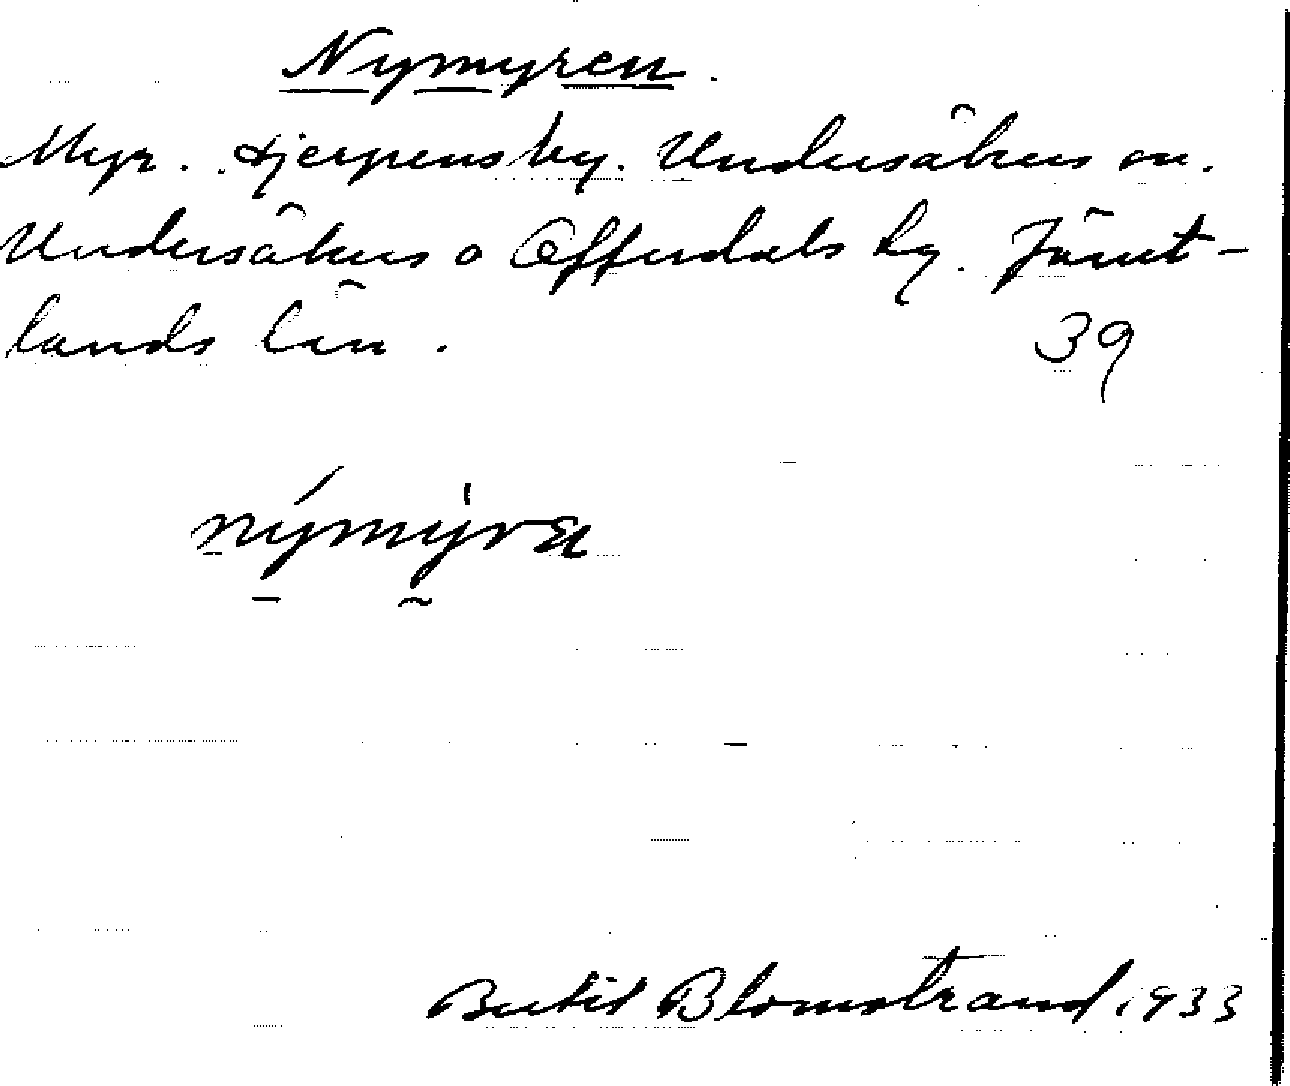 Nymyren.
Myr. Hjerpens by. Undersåkers sn.
Undersåkers o Offerdals tg. Jämt-
lands län.
39
nýmýra
Bertil Blomstrand 1933